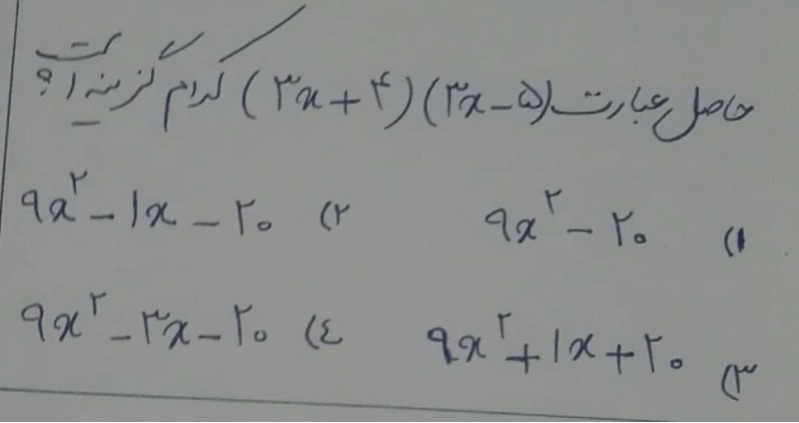 حاصل عبارت (۳x+۴)(۳x-۵) کدام گزینه است؟
۱) ۹x^۲ - ۲۰
۲) ۹x^۲ - ۱x - ۲۰
۳) ۹x^۲ + ۱x + ۲۰
٤) ۹x^۲ - ۳x - ۲۰